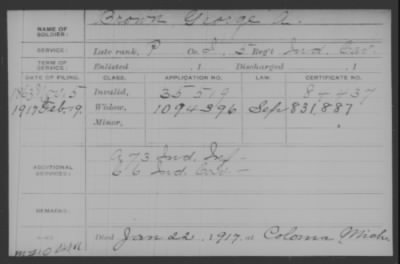 NAME OF SOLDIER: Brown George A.
SERVICE: Late rank, P Co. I, 5 Reg't Ind. Cav.
TERM OF SERVICE: Enlisted , 1 Discharged , 1
DATE OF FILING. CLASS. APPLICATION NO. LAW. CERTIFICATE NO.
1863 Nov. 5 Invalid, 35519 84437
1917 Feb. 9. Widow, 1094396 Sep 831,887
Minor,
ADDITIONAL SERVICES: G 73 Ind. Inf -
C 6 Ind Cav -
REMARKS:
Died Jan 22, 1917, at Coloma Mich.